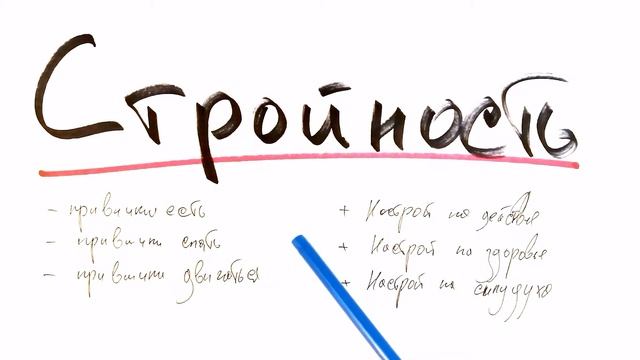 Стройность
- привычки есть
- привычки спать
- привычки двигаться
+ Настрой на действие
+ Настрой на здоровье
+ Настрой на силу духа